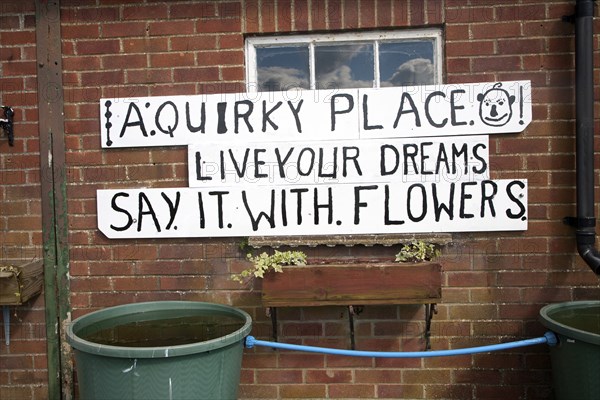 A.QUIRKY PLACE.!
LIVE YOUR DREAMS
SAY.IT.WITH.FLOWERS.